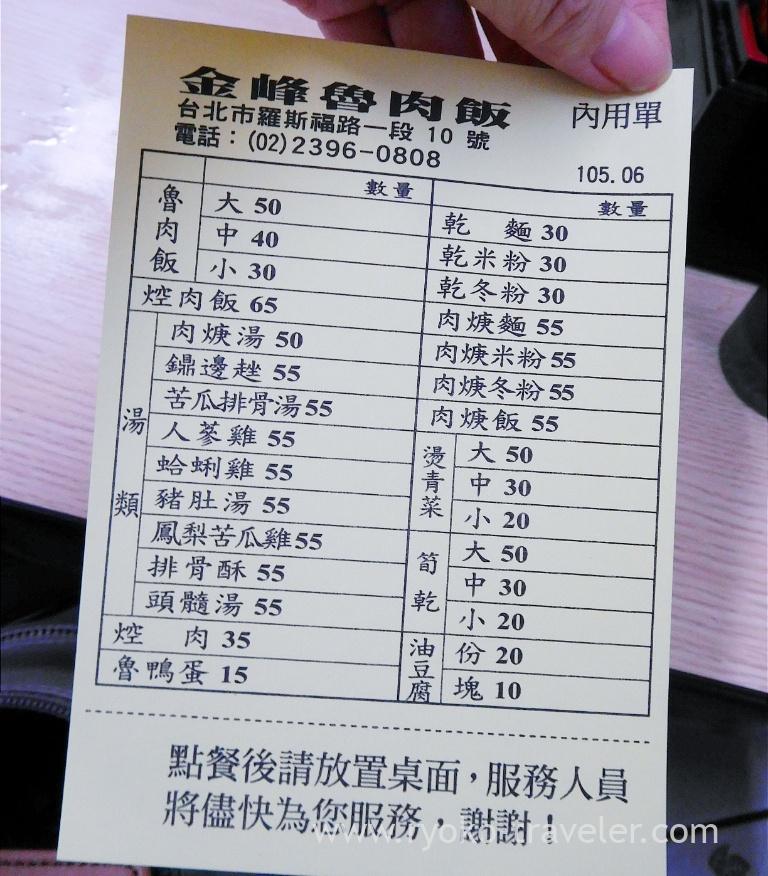 金峰魯肉飯
內用單
台北市羅斯福路一段 10 號
電話：(02)2396-0808
105.06
數量
魯肉飯
大 50
中 40
小 30
焢肉飯 65
湯類
肉焿湯 50
鐤邊趖 55
苦瓜排骨湯 55
人蔘雞 55
蛤蜊雞 55
豬肚湯 55
鳳梨苦瓜雞 55
排骨酥 55
頭髓湯 55
焢 肉 35
魯鴨蛋 15
數量
乾 麵 30
乾米粉 30
乾冬粉 30
肉焿麵 55
肉焿米粉 55
肉焿冬粉 55
肉焿飯 55
燙青菜
大 50
中 30
小 20
筍乾
大 50
中 30
小 20
油豆腐
份 20
塊 10
點餐後請放置桌面，服務人員
將儘快為您服務，謝謝！
www.ryoko-traveler.com